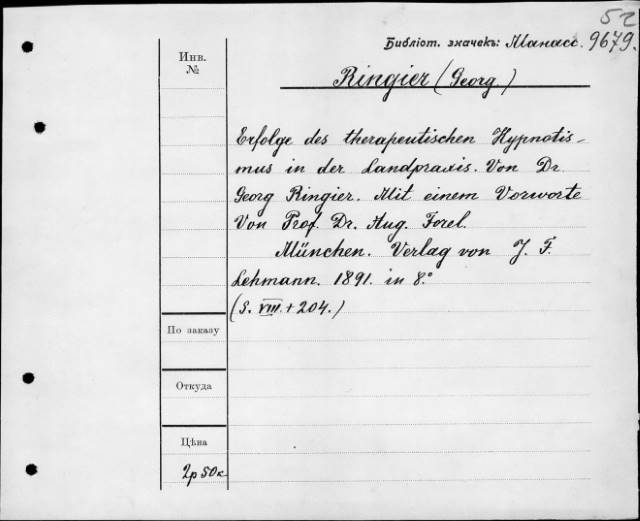 52
Библіот. значекъ: Манасс. 9679.
Инв.
№
Ringier (Georg)
Erfolge des therapeutischen Hypnotis-
mus in der Landpraxis. Von Dr.
Georg Ringier. Mit einem Vorworte
Von Prof. Dr. Aug. Forel.
München. Verlag von J. F.
Lehmann. 1891. in 8.°
(S. VIII. + 204.)
По заказу
Откуда
Цѣна
2р 50к